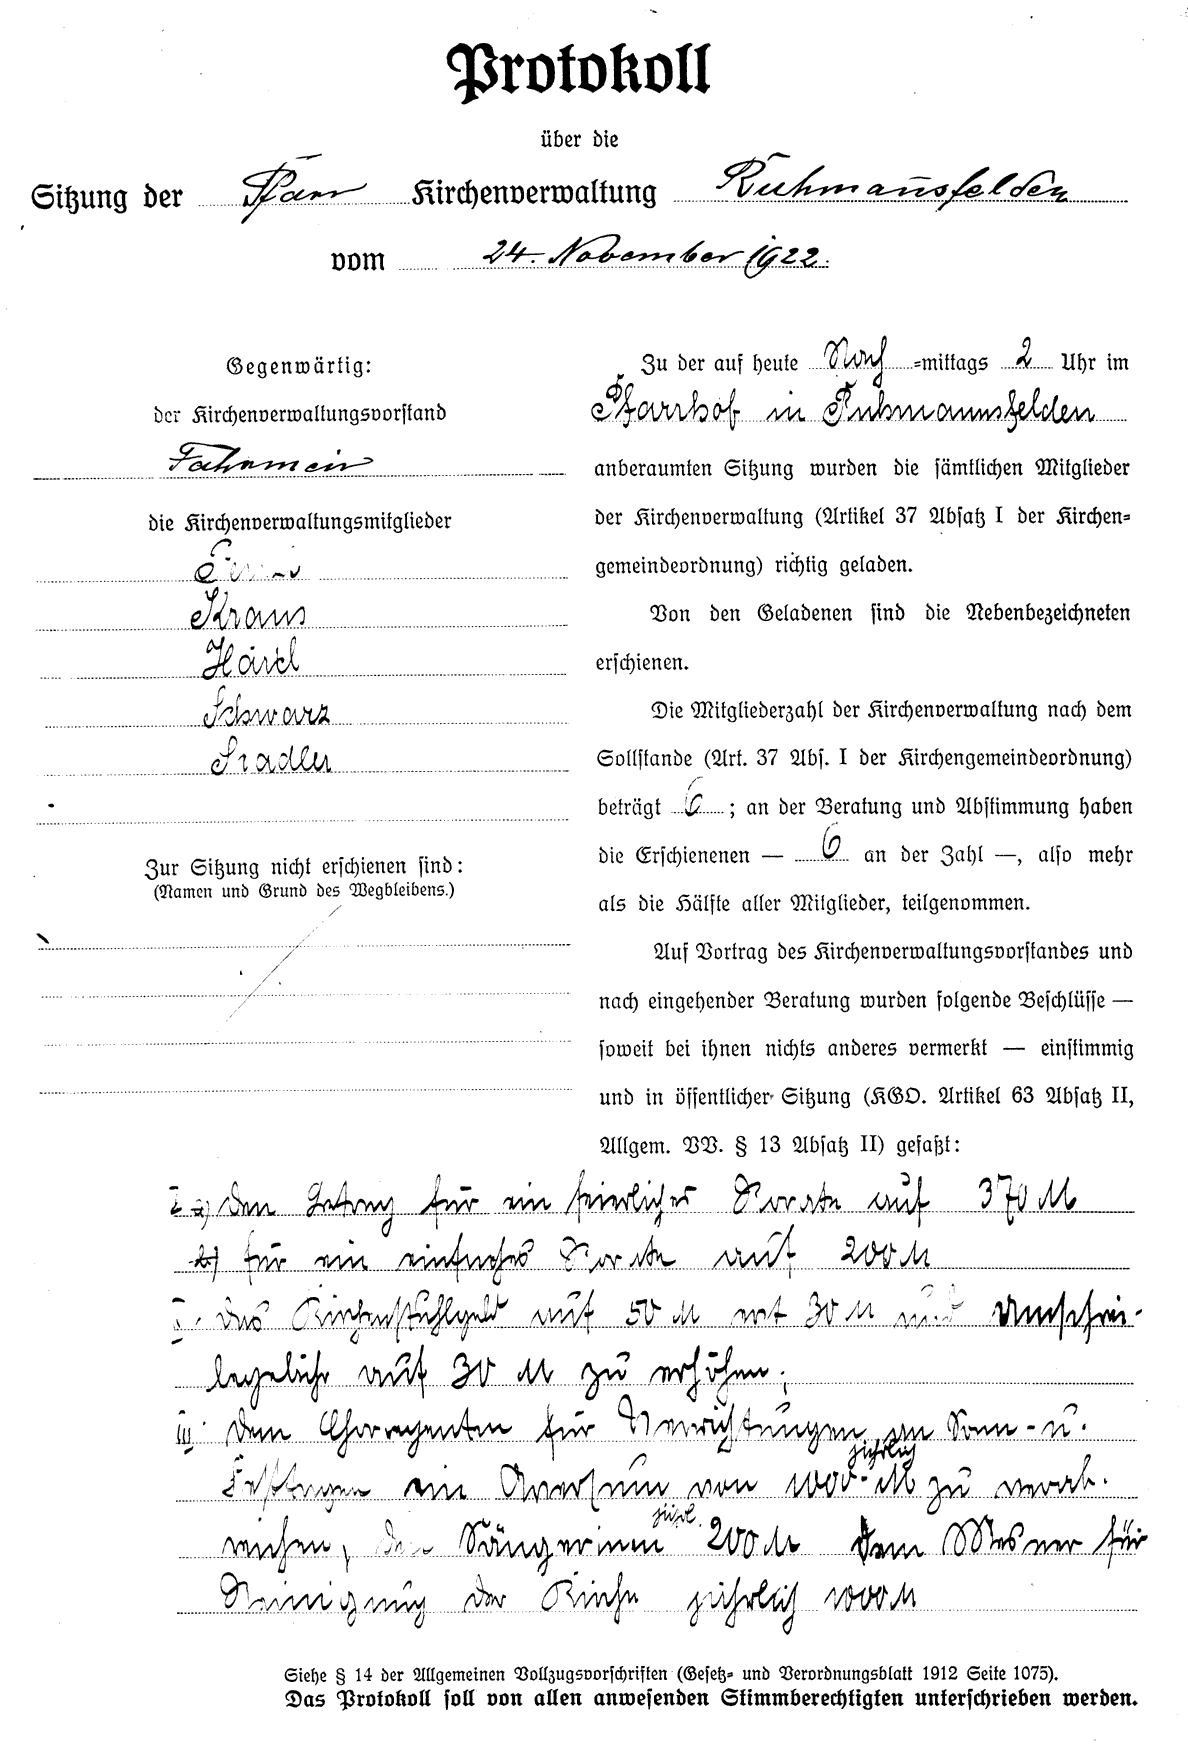 Protokoll
über die
Sitzung der Pfarr Kirchenverwaltung Ruhmannsfelden
vom 24. November 1922.
Gegenwärtig:
der Kirchenverwaltungsvorstand
Fahrmeier
die Kirchenverwaltungsmitglieder
Kraus
Härtl
Schwarz
Stadler
Zur Sitzung nicht erschienen sind:
(Namen und Grund des Wegbleibens.)
Zu der auf heute Nach =mittags 2 Uhr im
Pfarrhof in Ruhmannsfelden
anberaumten Sitzung wurden die sämtlichen Mitglieder
der Kirchenverwaltung (Artikel 37 Absatz I der Kirchen=
gemeindeordnung) richtig geladen.
Von den Geladenen sind die Nebenbezeichneten
erschienen.
Die Mitgliederzahl der Kirchenverwaltung nach dem
Sollstande (Art. 37 Abs. I der Kirchengemeindeordnung)
beträgt 6 ; an der Beratung und Abstimmung haben
die Erschienenen — 6 an der Zahl —, also mehr
als die Hälfte aller Mitglieder, teilgenommen.
Auf Vortrag des Kirchenverwaltungsvorstandes und
nach eingehender Beratung wurden folgende Beschlüsse —
soweit bei ihnen nichts anderes vermerkt — einstimmig
und in öffentlicher Sitzung (KGO. Artikel 63 Absatz II,
Allgem. VV. § 13 Absatz II) gefaßt:
I a) den Betrag für ein feierliches Rorate auf 370 M
b) für ein einfaches Rorate auf 200 M
das Kirchenstuhlgeld auf 50 M mit 30 M und Umschrei-
begebühr auf 30 M zu erhöhen;
III. dem Chorregenten für Verrichtungen an Sonn- u.
Festtagen ein Aversum von 1000 M jährlich zu verab-
reichen, den Sängerinnen jährl. 200 M dem Mesner für
Reinigung der Kirche jährlich 1000 M
Siehe § 14 der Allgemeinen Vollzugsvorschriften (Gesetz= und Verordnungsblatt 1912 Seite 1075).
Das Protokoll soll von allen anwesenden Stimmberechtigten unterschrieben werden.